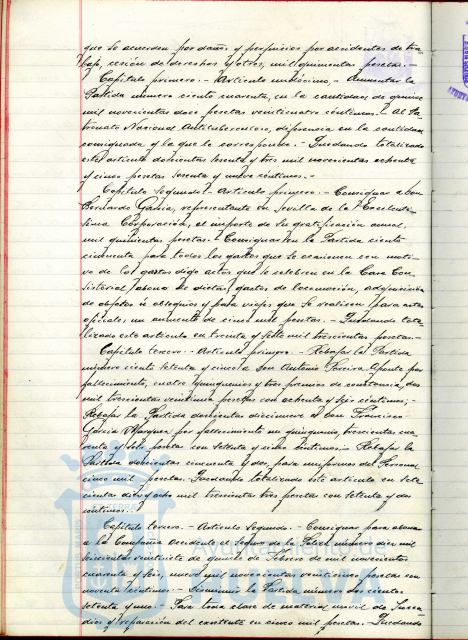 que se acuerden por daños y perjuicios por accidentes de tra-
bajo, cesión de derechos y otros, mil quinientas pesetas.-
Capítulo primero.- Artículo undécimo.- Aumentar la
Partida número ciento cuarenta, en la cantidad de quince
mil novecientas doce pesetas veinticuatro céntimos.- Al Pa-
tronato Nacional Antituberculoso, diferencia en la cantidad
consignada y la que le corresponde.- Quedando totalizado
este artículo doscientas setenta y tres mil novecientas ochenta
y cinco pesetas sesenta y nueve céntimos.-
Capítulo Segundo.- Artículo primero.- Consignar a Don
Bernardo García, representante en Sevilla de la Excelentí-
sima Corporación, el importe de su gratificación anual,
mil quinientas pesetas.- Consignar en la Partida ciento
cincuenta para todos los gastos que se ocasionen con moti-
vo de los gastos digo actos que se celebren en la Casa Con-
sistorial, abono de dietas, gastos de locomoción, adquisición
de objetos u obsequios y para viajes que se realicen para actos
oficiales, un aumento de cinco mil pesetas.- Quedando tota-
lizado este artículo en treinta y siete mil trescientas pesetas.-
Capítulo tercero.- Artículo primero.- Rebajar la Partida
número ciento setenta y cinco a Don Antonio Pereira Aponte por
fallecimiento, cuatro quinquenios y tres premios de constancia, dos
mil trescientas veintiuna pesetas con ochenta y seis céntimos;-
Rebajar la Partida doscientas diecinueve a Don Francisco
García Márquez por fallecimiento un quinquenio, trescientas cua-
renta y siete pesetas con setenta y cinco céntimos.- Rebajar la
Partida doscientas cincuenta y dos, para uniformes del Personal
cinco mil pesetas. Quedando totalizado este artículo en sete-
cientas dieciocho mil trescientas tres pesetas con setenta y dos
céntimos.-
Capítulo tercero.- Artículo Segundo.- Consignar para abonar
a la Compañía Occidente el Seguro de la Póliza número diez mil
seiscientas veintisiete de quince de Febrero de mil novecientos
cuarenta y seis, nueve mil novecientas veinticinco pesetas con
noventa céntimos.- Disminuir la Partida número doscientas
setenta y uno.- Para toda clase de material móvil de Incen-
dios y reparación del existente en cinco mil pesetas. Quedando